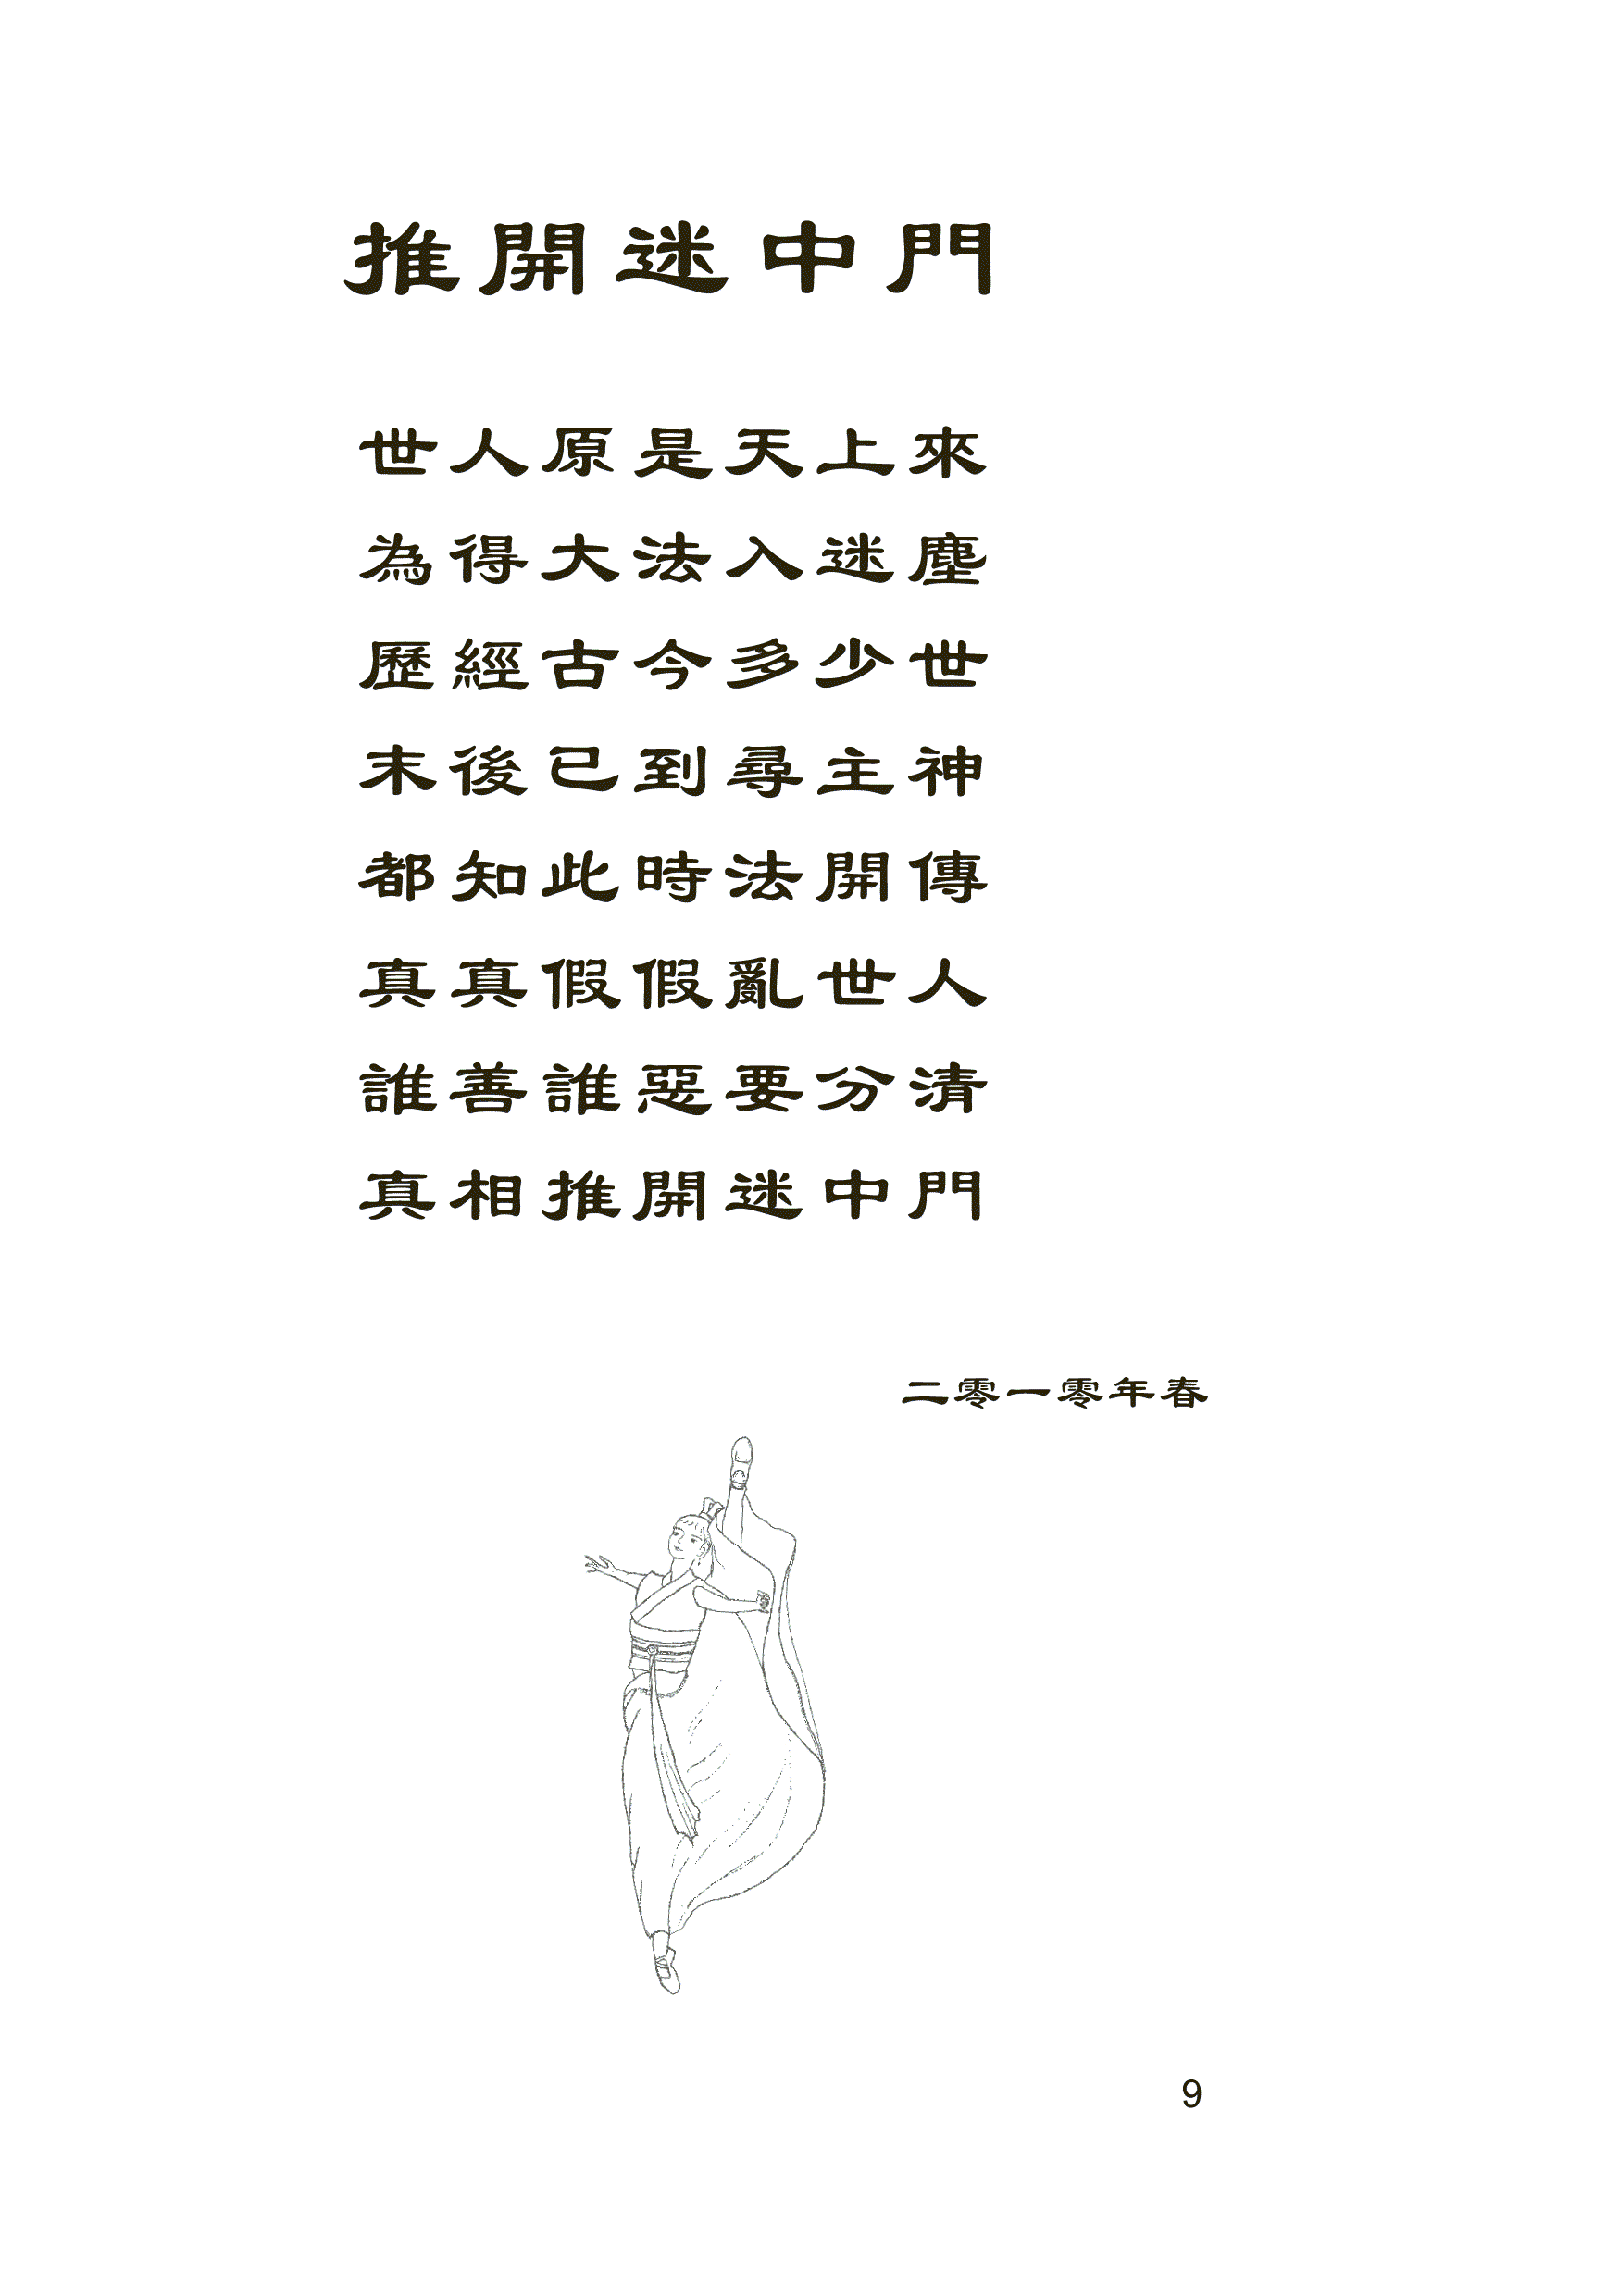 推開迷中門
世人原是天上來
為得大法入迷塵
歷經古今多少世
末後已到尋主神
都知此時法開傳
真真假假亂世人
誰善誰惡要分清
真相推開迷中門
二零一零年春
9